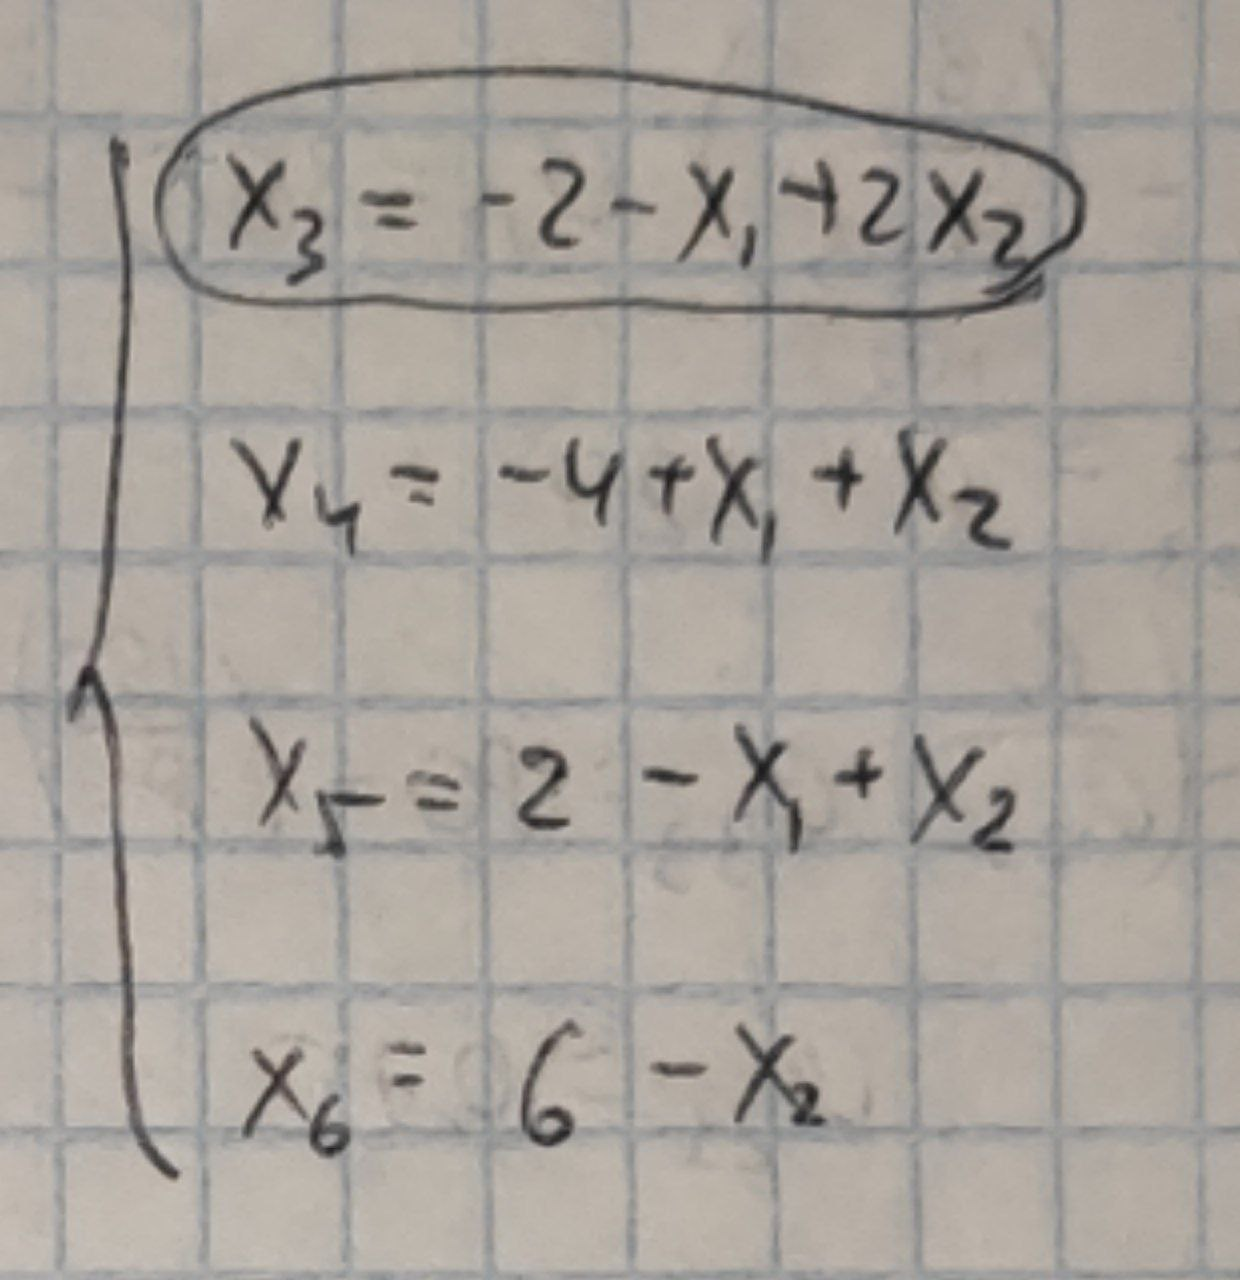 x₃ = -2 - x₁ + 2x₂
x₄ = -4 + x₁ + x₂
x₅ = 2 - x₁ + x₂
x₆ = 6 - x₂